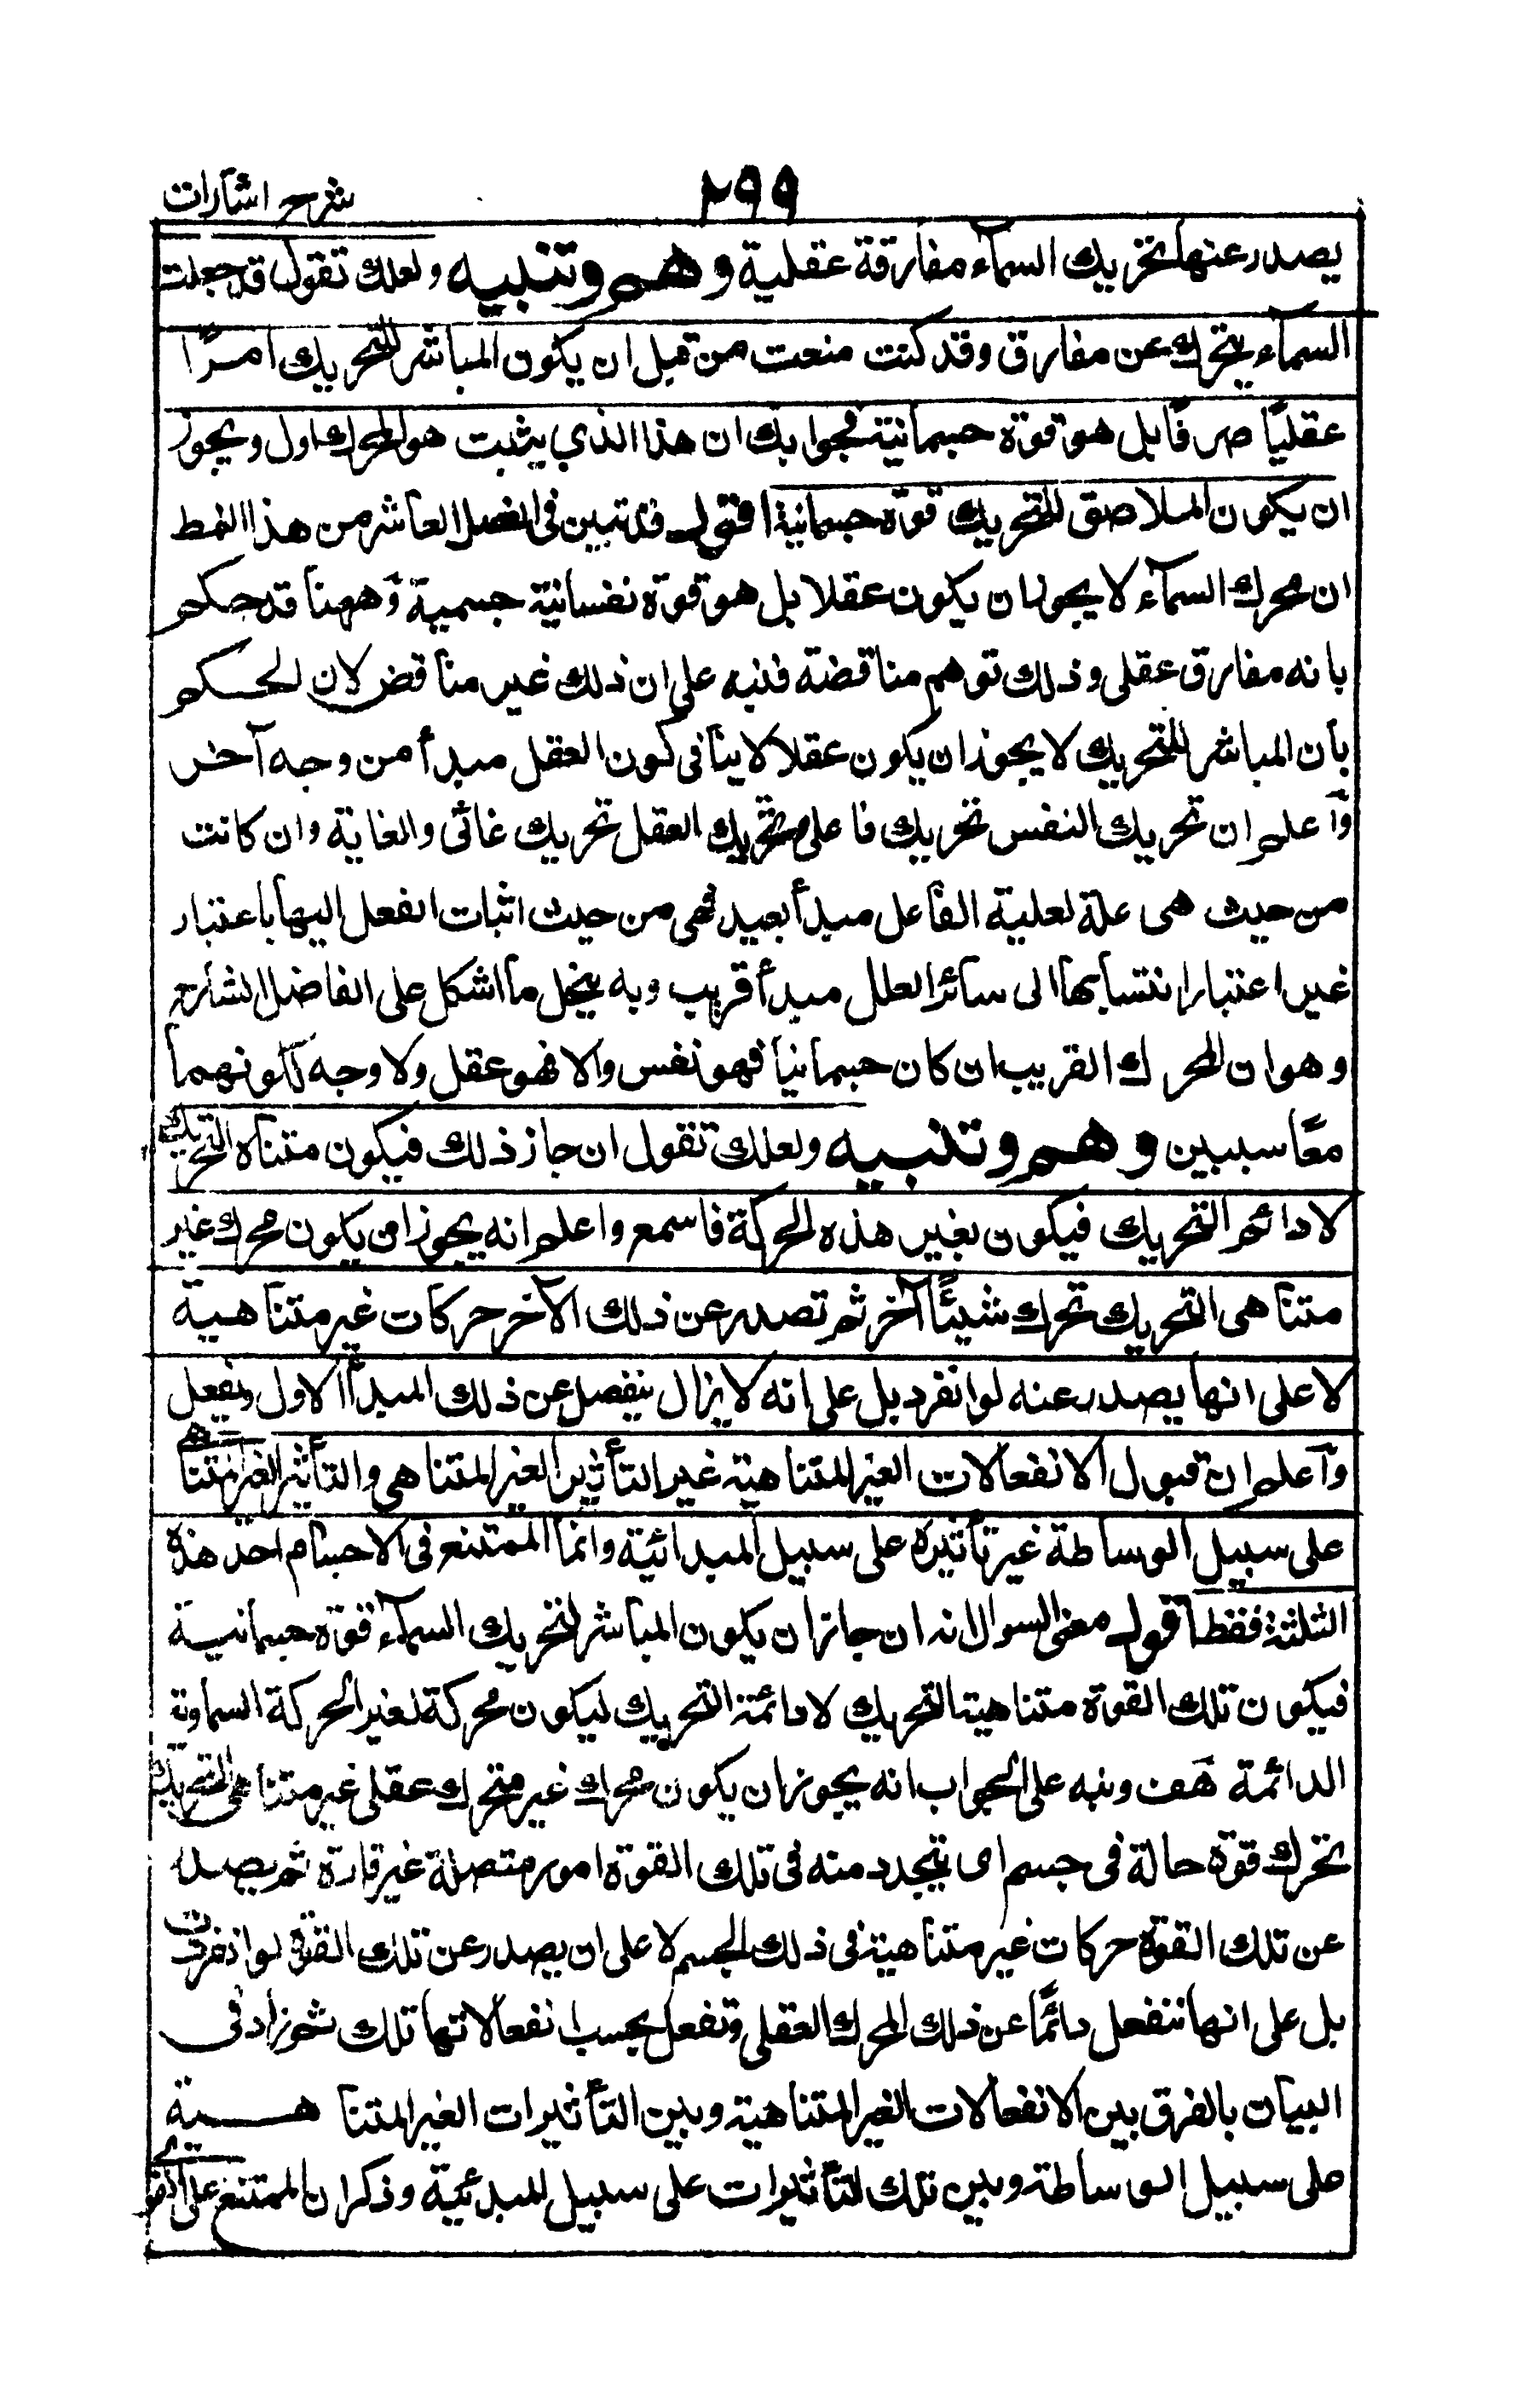 ٢٩٩
شرح اشارات
يصدر عنها تحريك السمآء مفارقة عقلية وهم وتنبيه ولعلك تقول قد جعلت
السمآء يتحرك عن مفارق وقد كنت منعت من قبل ان يكون المباشر للتحريك امرًا
عقليًا صرفًا بل هو قوة جسمانية فجوابك ان هذا الذي يثبت هو المحرك اول ويجوز
ان يكون الملاصق للتحريك قوة جسمانية اقول قد تبين في الفصل العاشر من هذا النمط
ان محرك السمآء لا يجوز ان يكون عقلا بل هو قوة نفسانية جسمية وههنا قد حكم
بانه مفارق عقلى وذلك توهم مناقضة فنبه على ان ذلك غير مناقض لان الحكم
بأن المباشر للتحريك لا يجوز ان يكون عقلا لا ينافى كون العقل مبدأ من وجه آخر
وآعلم ان تحريك النفس تحريك فاعلى وتحريك العقل تحريك غائى والغاية وان كانت
من حيث هى علة لعلية الفاعل مبدأ بعيد فهى من حيث اثبات الفعل اليها باعتبار
غير اعتبار انتسابها الى سائر العلل مبدأ قريب وبه ينحل ما اشكل على الفاضل الشارح
وهو ان المحرك القريب ان كان جسمانيا فهو نفس والا فهو عقل ولا وجه لكونهما
معًا سببين وهم وتنبيه ولعلك تقول ان جاز ذلك فيكون متناه التحريك
لا دائم التحريك فيكون بغير هذه الحركة فاسمع واعلم انه يجوز ان يكون محرك غير
متناهى التحريك تحرك شيئًا آخر ثم تصدر عن ذلك الآخر حركات غير متناهية
لا على انها يصدر عنه لو انفرد بل على انه لا يزال ينفصل عن ذلك المبدأ الاول ويفعل
وآعلم ان قبول الانفعالات الغير المتناهية غير التأثير الغير المتناهى والتأثير الغير المتناهى
على سبيل الوساطة غير تأثيره على سبيل المبدائية وانما الممتنع فى الاجسام احد هذه
الثلثة فقط اقول معنى السوال انه ان جاز ان يكون المباشر لتحريك السمآء قوة جسمانية
فيكون تلك القوة متناهية التحريك لا دائمة التحريك ليكون محركة لغير الحركة السماوية
الدائمة هف ونبه على الجواب انه يجوز ان يكون محرك غير متحرك عقلى غير متناهى التحريك
تحرك قوة حالة فى جسم اى يتجدد منه فى تلك القوة امور متصلة غير قارة ثم يصدر
عن تلك القوة حركات غير متناهية فى ذلك الجسم لا على ان يصدر عن تلك القوة لو انفردت
بل على انها تنفعل دائمًا عن ذلك المحرك العقلى وتفعل بحسب انفعالاتها تلك ثم زاد فى
البيان بالفرق بين الانفعالات الغير المتناهية وبين التأثيرات الغير المتناهية
على سبيل الوساطة وبين تلك التأثيرات على سبيل المبدئية وذكر ان الممتنع على القوى